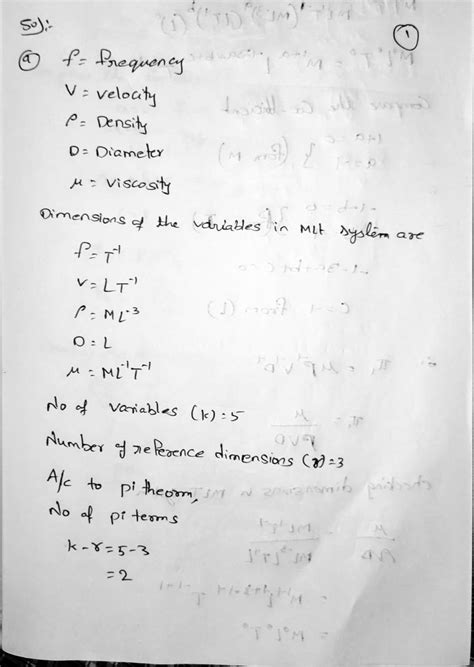 Sol:-
①
ⓐ f = frequency
V = velocity
ρ = Density
D = Diameter
μ = viscosity
Dimensions of the variables in MLt system are
f = T⁻¹
V = LT⁻¹
ρ = ML⁻³
D = L
μ = ML⁻¹T⁻¹
No of variables (k) = 5
Number of reference dimensions (r) = 3
A/c to pi theorm,
No of pi terms
k - r = 5 - 3
= 2